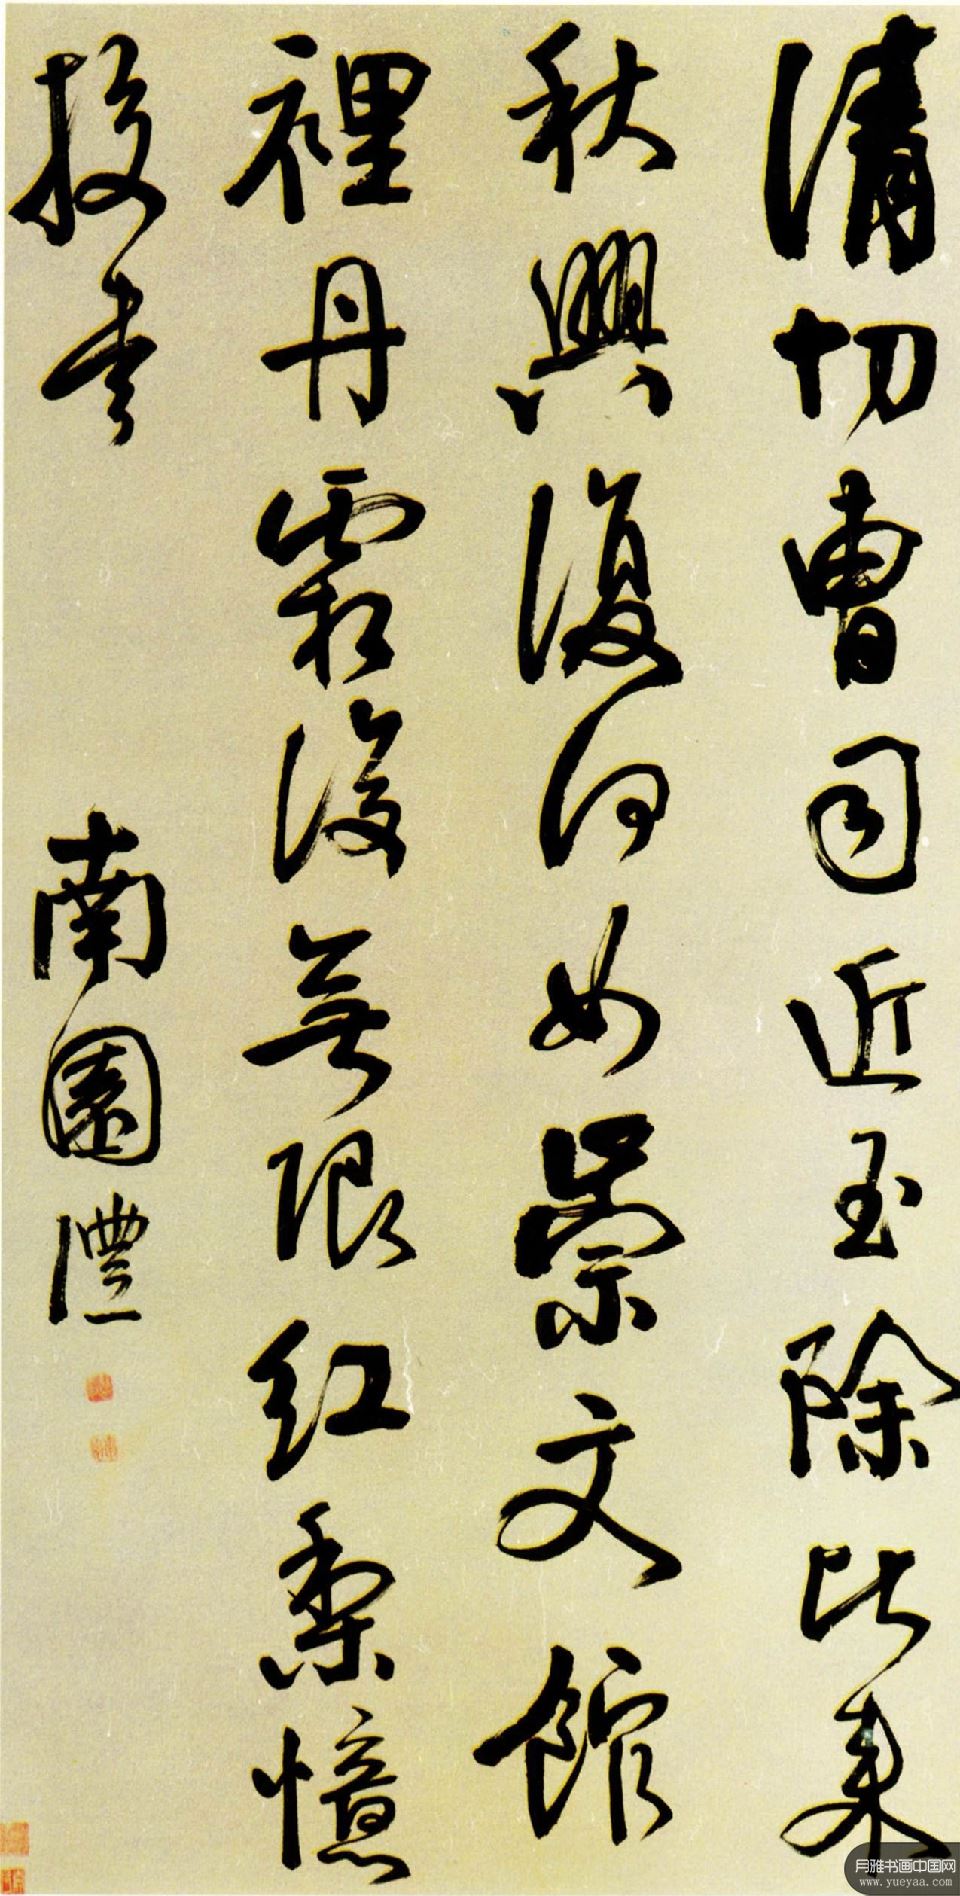 清切曹司近玉除比来
秋興復何如崇文館
裡丹霜後無限紅梨憶
校書
南園澧
月雅书画中国网
www.yueyaa.com